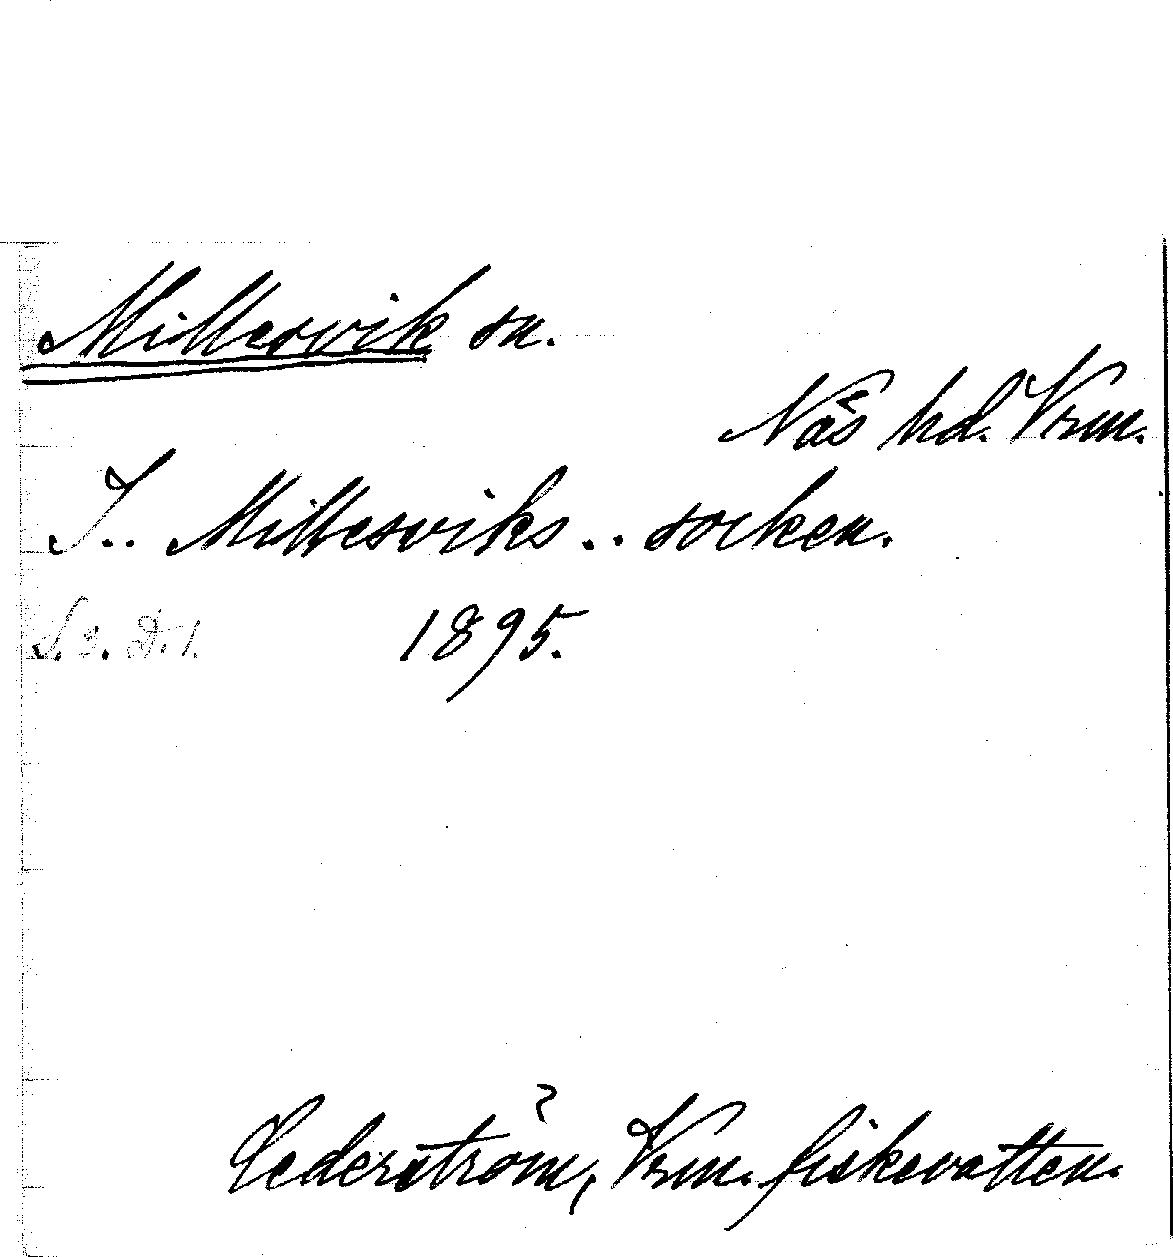 Millesvik sn.
Näs hd. Vrm.
I.. Millesviks.. socken.
S. 3. D. 1. 1895.
Cederström, Vrm. fiskevatten.